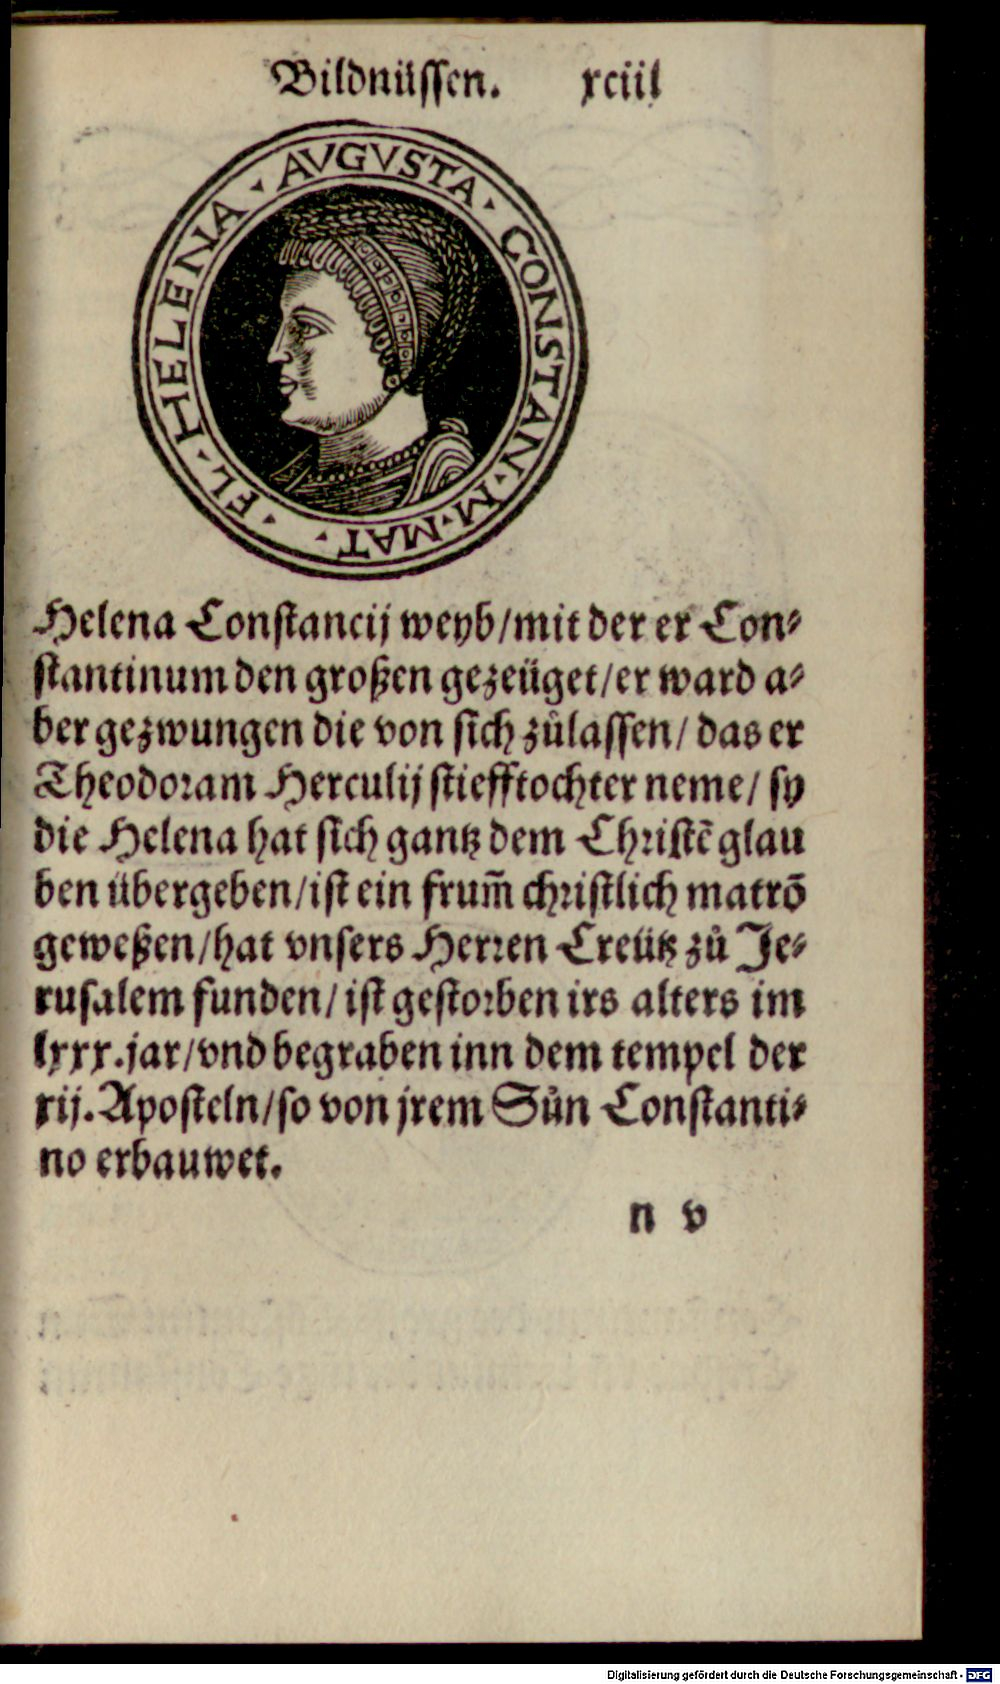 Bildnüssen. xciii
FL · HELENA · AVGVSTA · CONSTAN · M · MAT ·
Helena Constancij weyb/mit der er Con⸗
stantinum den großen gezeüget/er ward a⸗
ber gezwungen die von sich zůlassen/das er
Theodoram Herculij stiefftochter neme/sy
die Helena hat sich gantz dem Christẽ glau
ben übergeben/ist ein frum̃ christlich matrõ
geweßen/hat vnsers Herren Creütz zů Je⸗
rusalem funden/ist gestorben irs alters im
lxxx.jar/vnd begraben inn dem tempel der
xij.Aposteln/so von jrem Sůn Constanti⸗
no erbauwet.
n v
Digitalisierung gefördert durch die Deutsche Forschungsgemeinschaft - DFG